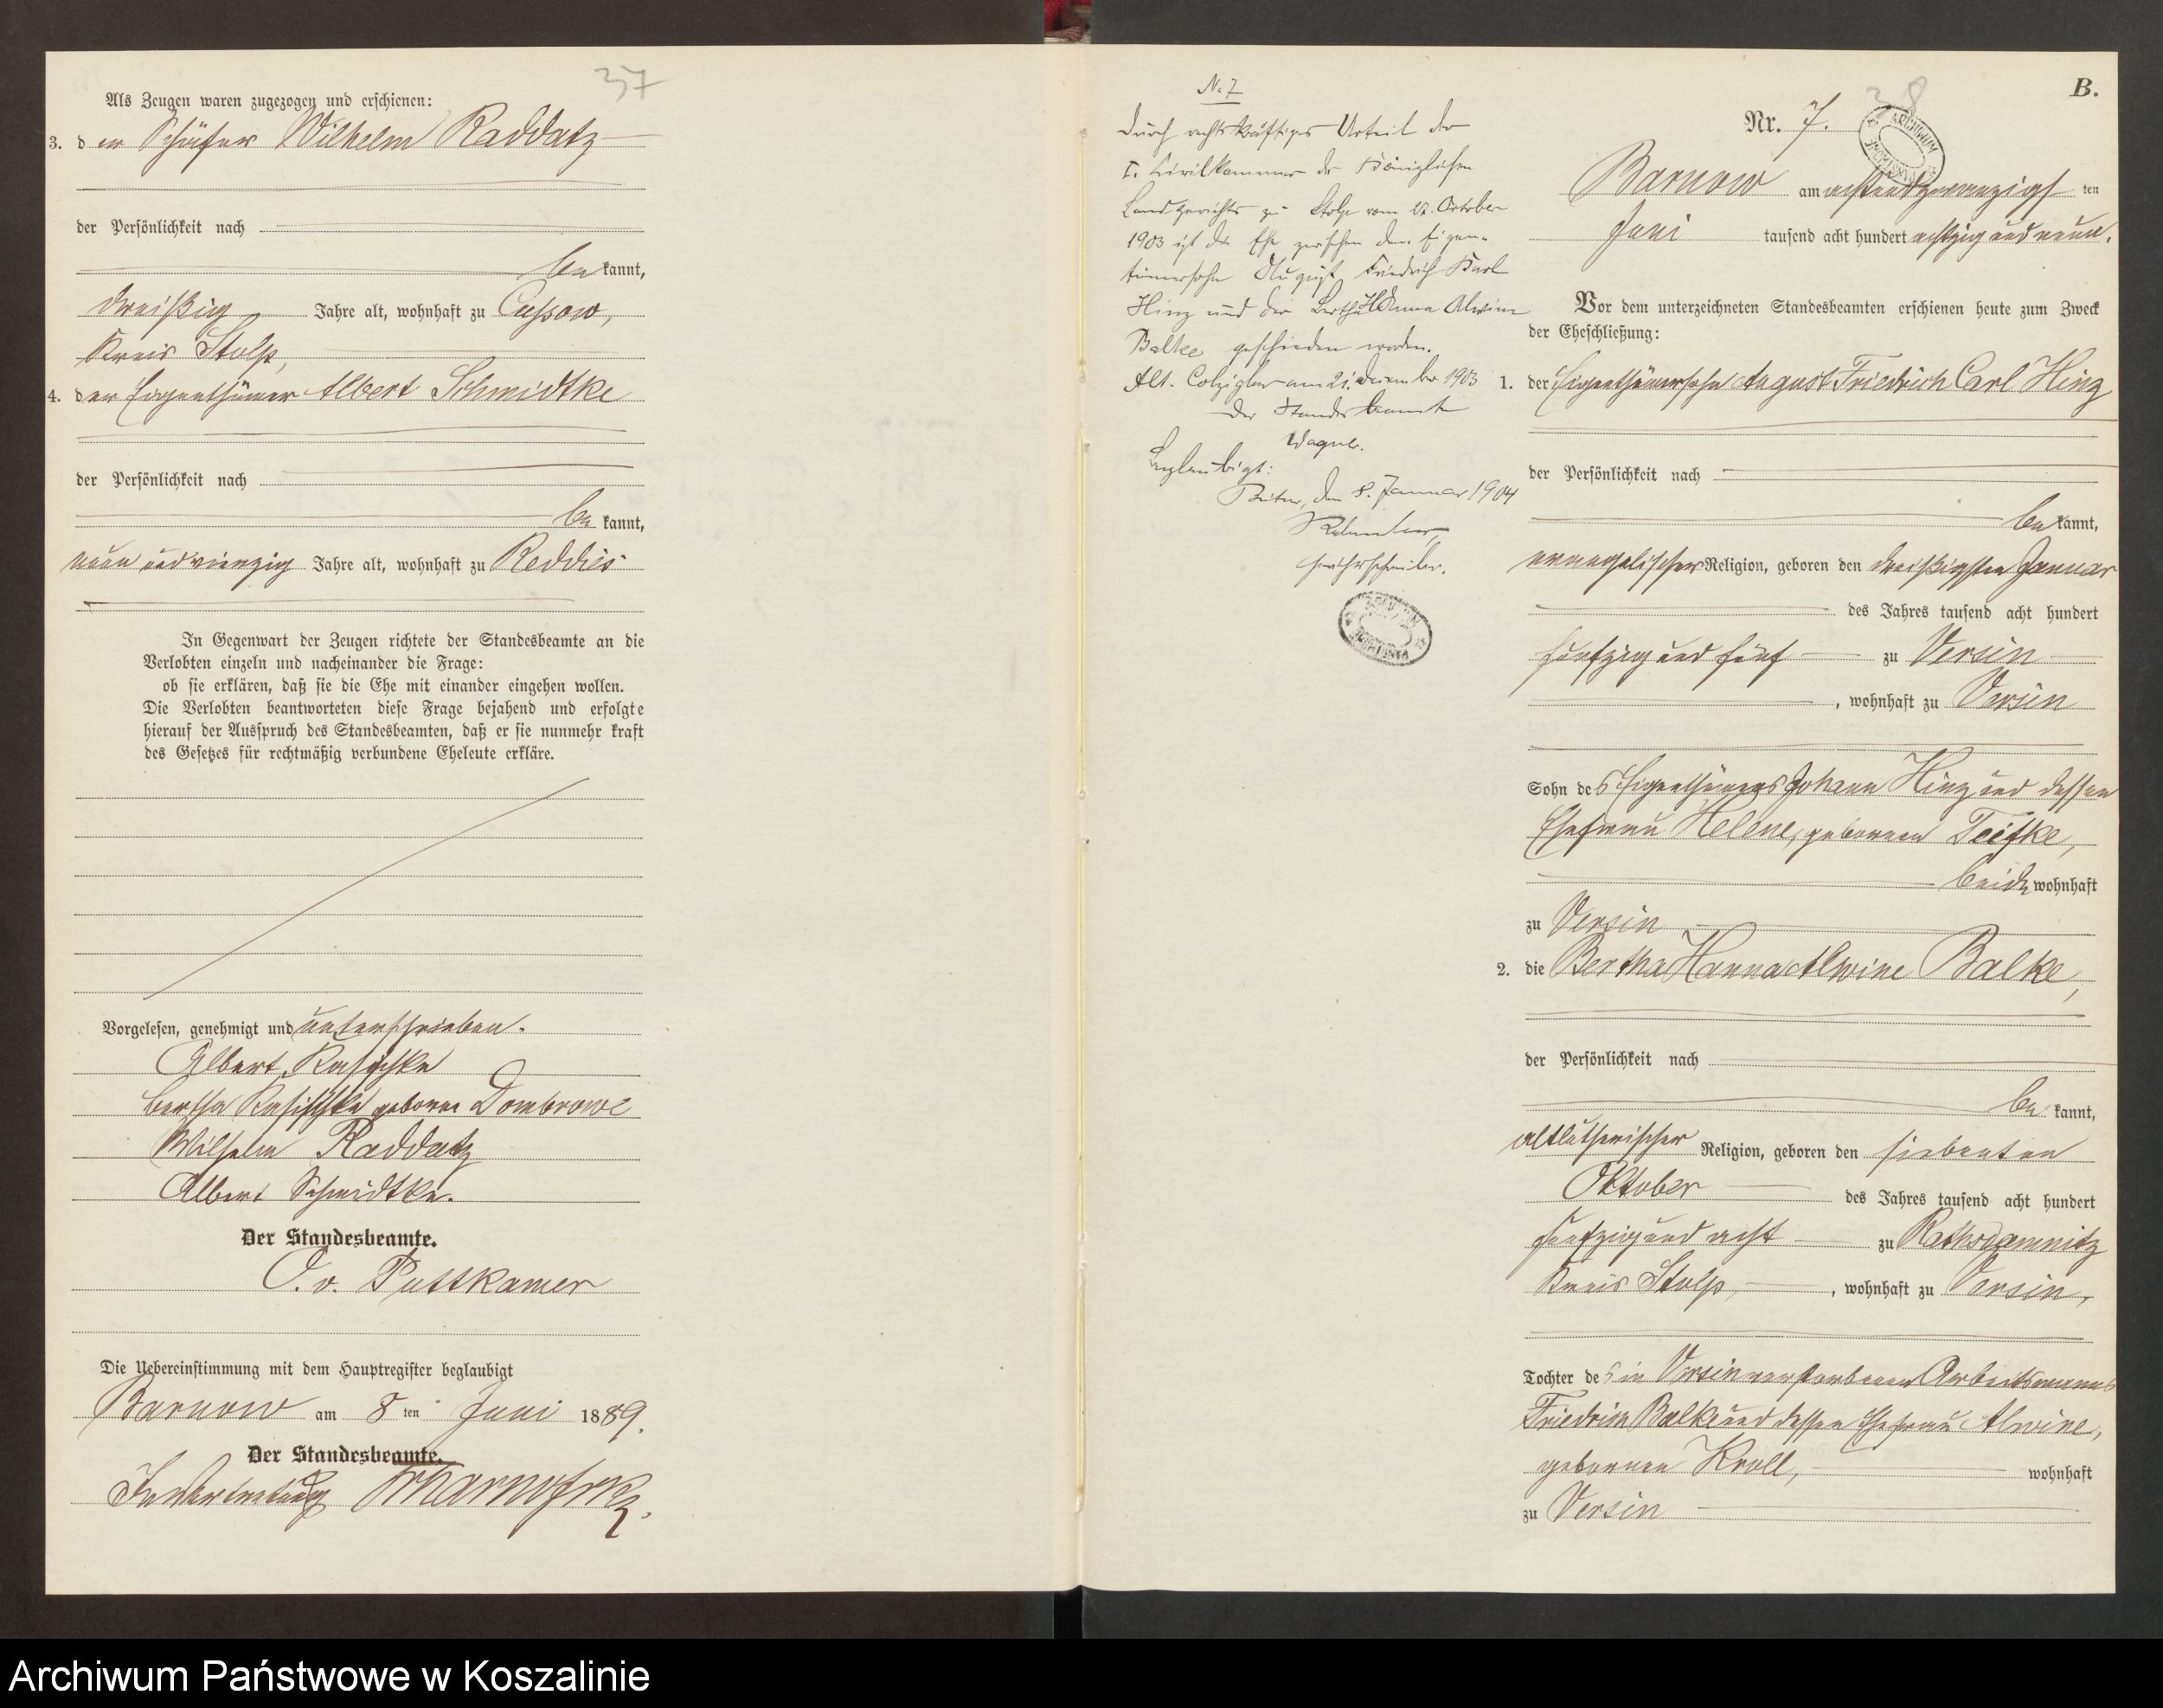 37
Als Zeugen waren zugezogen und erschienen:
3. der Schäfer Wilhelm Raddatz
der Persönlichkeit nach
be kannt,
dreißig Jahre alt, wohnhaft zu Cussow,
Kreis Stolp,
4. der Eigenthümer Albert Schmidtke
der Persönlichkeit nach
be kannt,
neun und vierzig Jahre alt, wohnhaft zu Reddies
In Gegenwart der Zeugen richtete der Standesbeamte an die
Verlobten einzeln und nacheinander die Frage:
ob sie erklären, daß sie die Ehe mit einander eingehen wollen.
Die Verlobten beantworteten diese Frage bejahend und erfolgte
hierauf der Ausspruch des Standesbeamten, daß er sie nunmehr kraft
des Gesetzes für rechtmäßig verbundene Eheleute erkläre.
Vorgelesen, genehmigt und unterschrieben.
Albert Kasischke
Bertha Kasischke geborne Dombrowe
Wilhelm Raddatz
Albert Schmidtke.
Der Standesbeamte.
O. v. Puttkamer
Die Uebereinstimmung mit dem Hauptregister beglaubigt
Barnow am 8 ten Juni 1889.
Der Standesbeamte.
In Vertretung
No 7
Durch rechtskräftiges Urteil der
I. Civilkammer des Königlichen
Landgerichts zu Stolp vom Oktober
1903 ist die Ehe zwischen dem Eigen-
tümersohn August Friedrich Karl
Hinz und der Bertha Hanna Alwine
Balke geschieden worden.
Alt. Colziglow am 21. Dezember 1903
Der Standesbeamte
Wagner.
Beglaubigt:
Bütow, den 8. Januar 1904
Gerichtsschreiber.
B.
38
Nr. 7.
Barnow am achtundzwanzigs ten
Juni tausend acht hundert achtzig und neun.
Vor dem unterzeichneten Standesbeamten erschienen heute zum Zweck
der Eheschließung:
1. der Eigenthümersohn August Friedrich Carl Hinz
der Persönlichkeit nach
be kannt,
evangelischer Religion, geboren den dreißigsten Januar
des Jahres tausend acht hundert
fünfzig und fünf zu Versin
, wohnhaft zu Versin
Sohn des Eigenthümers Johann Hinz und dessen
Ehefrau Helene, geborenen Teifke,
beide wohnhaft
zu Versin
2. die Bertha Hanna Alwine Balke,
der Persönlichkeit nach
be kannt,
altlutherischer Religion, geboren den siebenten
Oktober des Jahres tausend acht hundert
fünfzig und acht zu Rathsdamnitz
Kreis Stolp, wohnhaft zu Versin,
Tochter des in Versin verstorbenen Arbeitsmanns
Friedrich Balke und dessen Ehefrau Alwine,
geborenen Kroll, wohnhaft
zu Versin
Archiwum Państwowe w Koszalinie